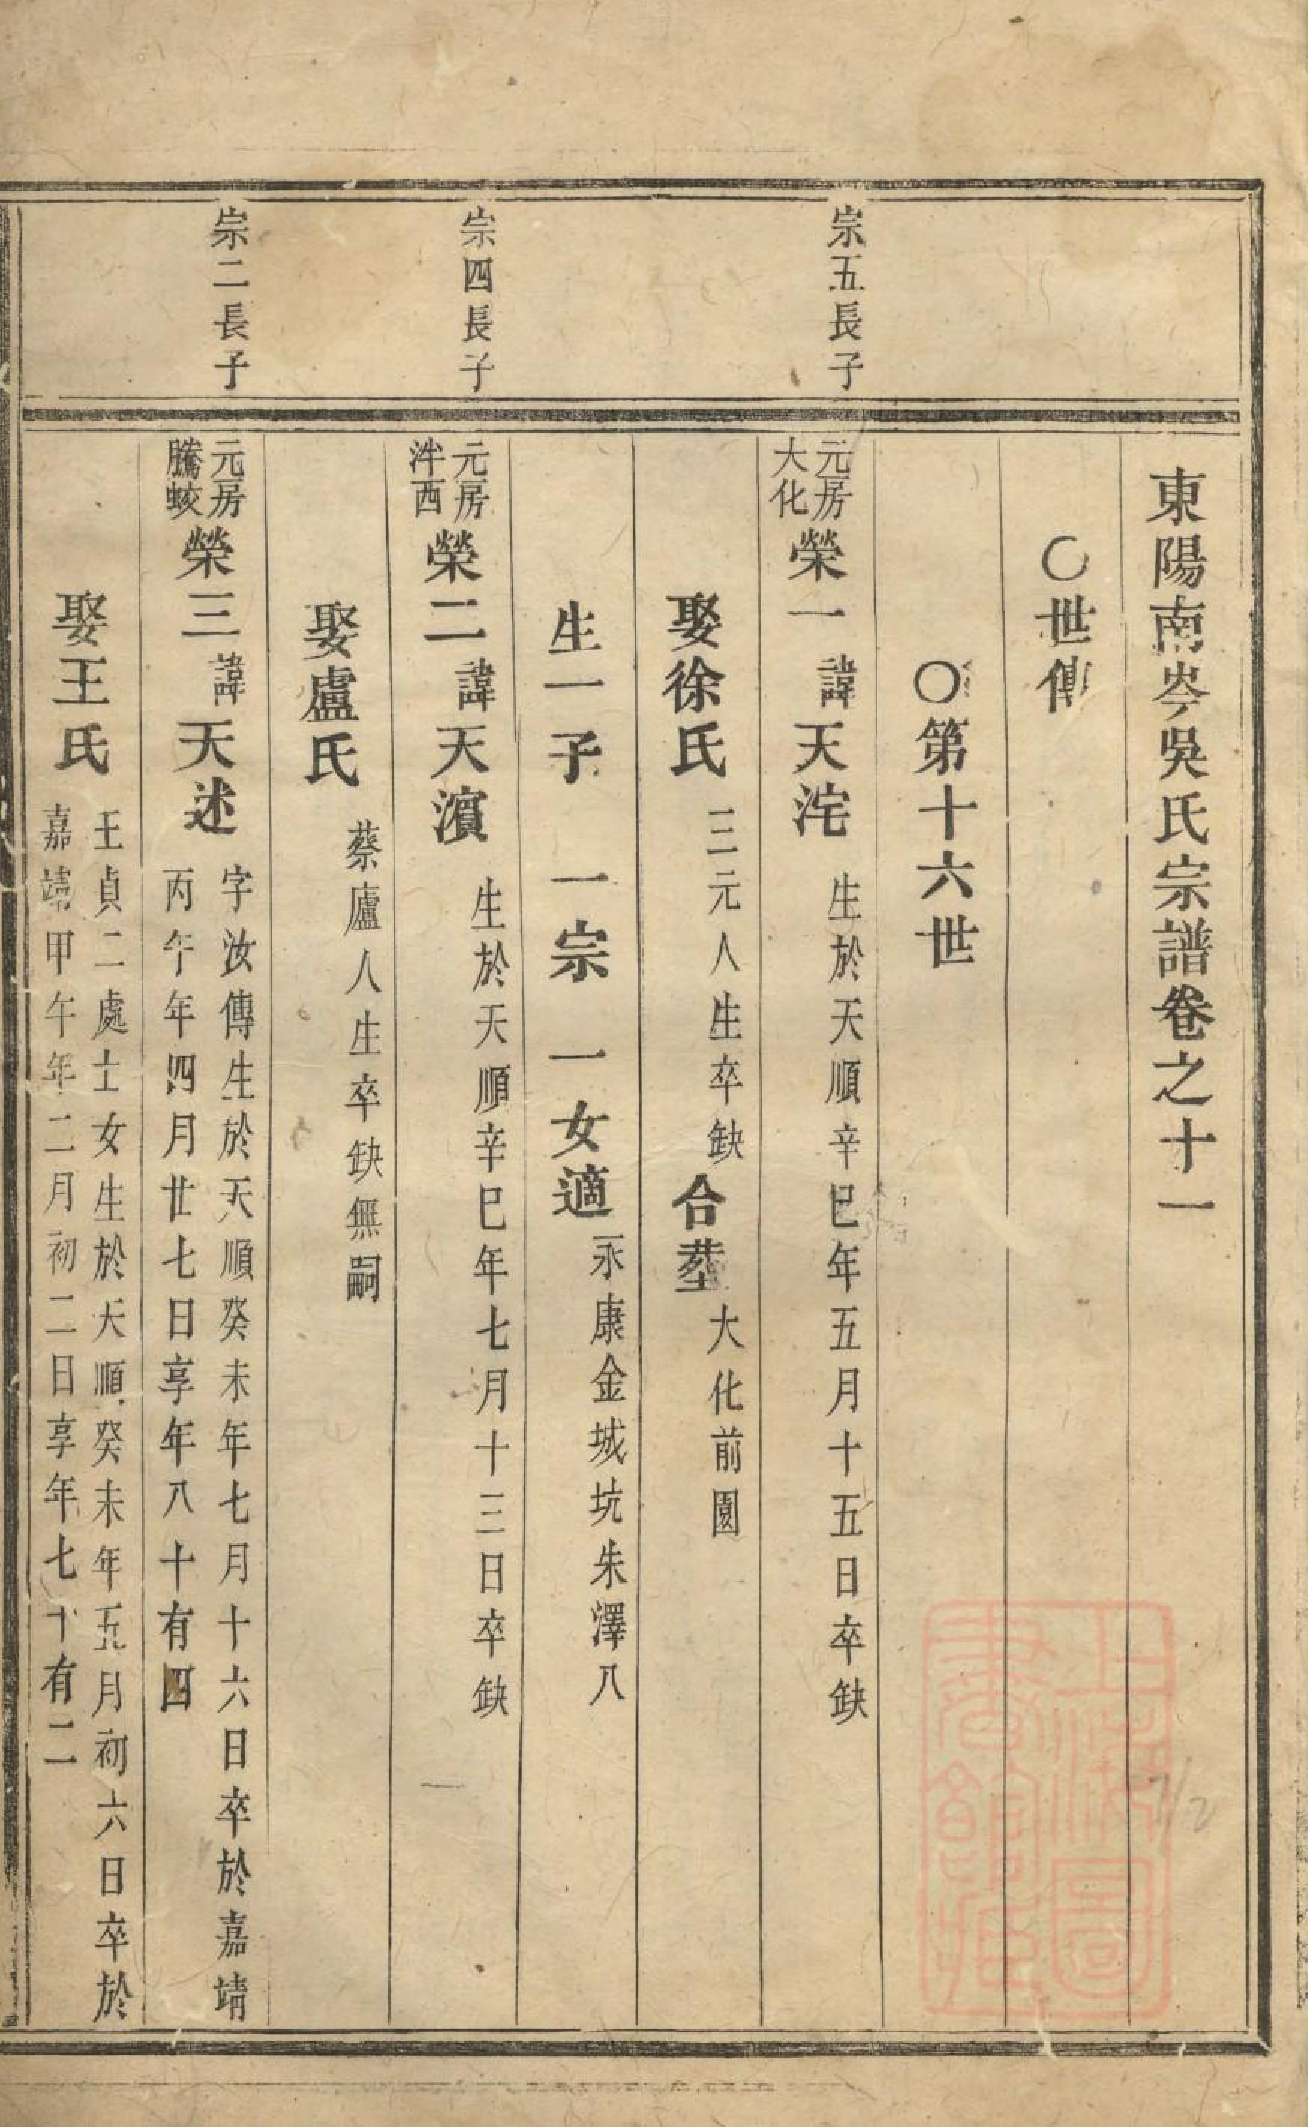 東陽南岑吳氏宗譜卷之十一
〇世傳
〇第十六世
宗五長子
元房大化榮一諱天沱生於天順辛巳年五月十五日卒缺
娶徐氏三元人生卒缺合塟大化前園
生一子 一宗 一女適永康金城坑朱澤八
宗四長子
元房泮西榮二諱天濵生於天順辛巳年七月十三日卒缺
娶盧氏蔡盧人生卒缺無嗣
宗二長子
元房騰蛟榮三諱天述字汝傳生於天順癸未年七月十六日卒於嘉靖
丙午年四月廿七日享年八十有四
娶王氏王貞二處士女生於天順癸未年五月初六日卒於
嘉靖甲午年二月初二日享年七十有二
上海圖書館藏